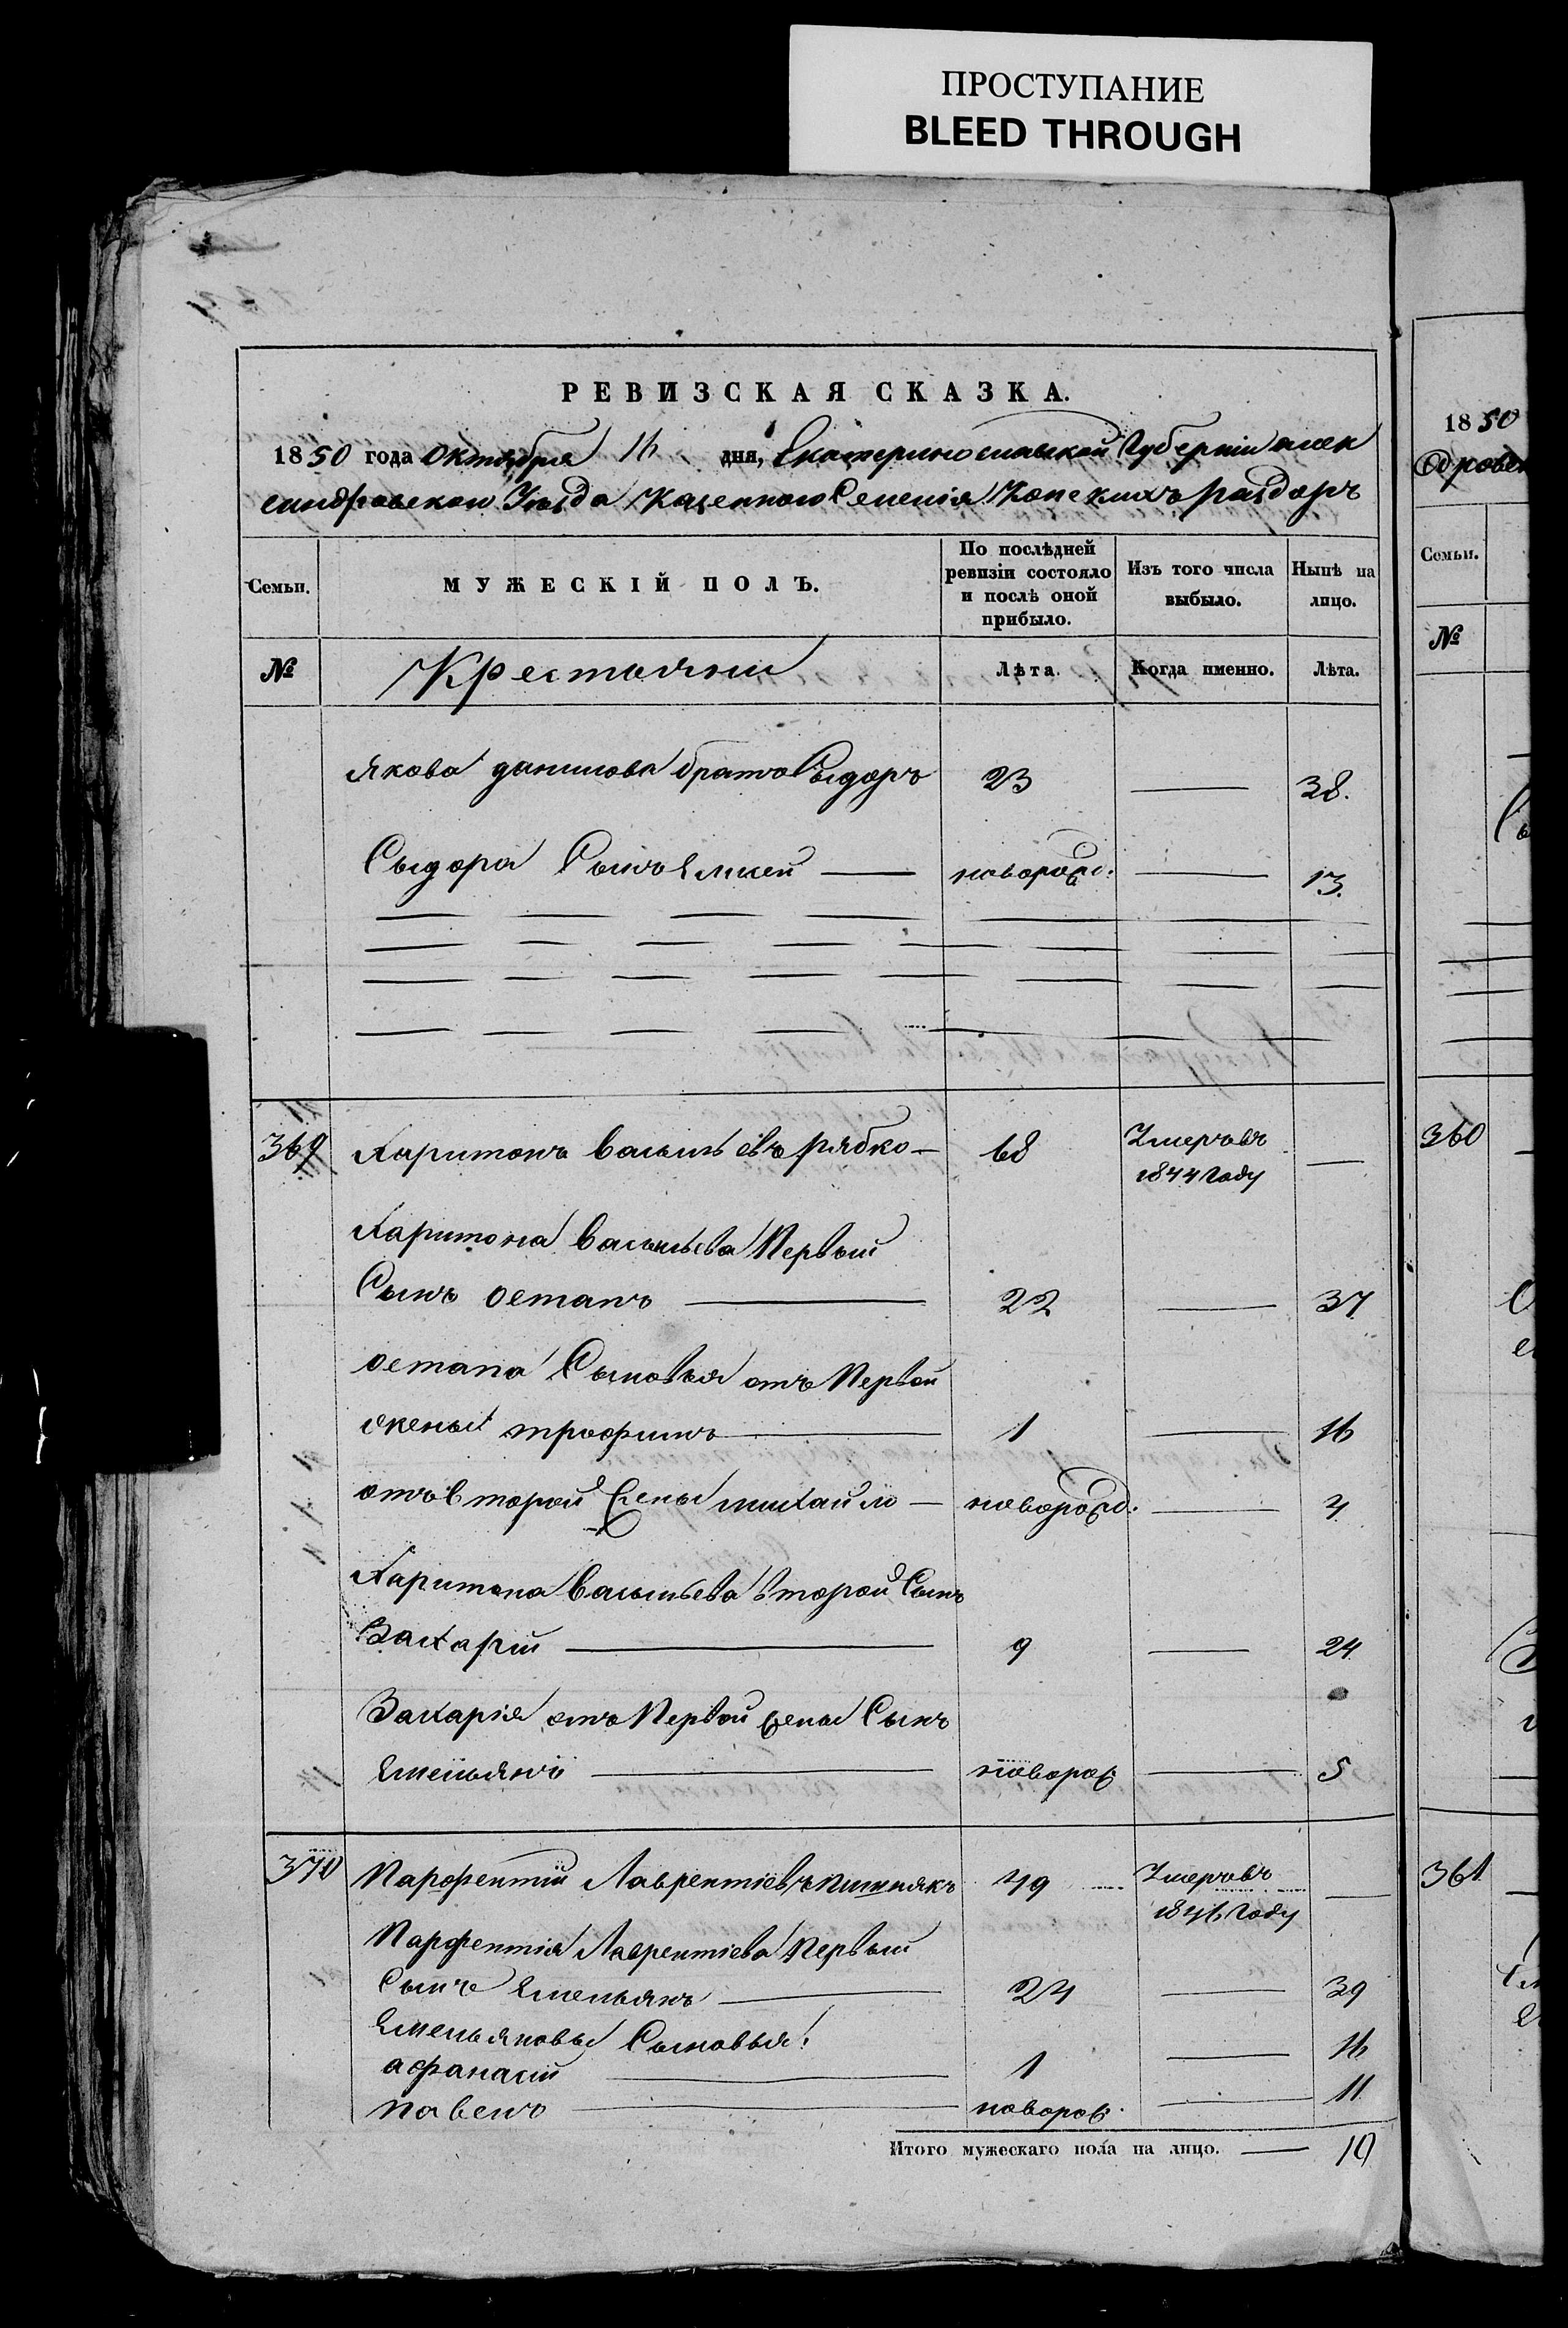 ПРОСТУПАНИЕ
BLEED THROUGH
РЕВИЗСКАЯ СКАЗКА.
1850 года октября 16 дня, Екатеринославской Губернии алек
сандровскои Уезда Казенного Селения Конскихъ раздоръ
Семьи. МУЖЕСКІЙ ПОЛЪ. По послѣдней ревизіи состояло и послѣ оной прибыло. Изъ того числа выбыло. Нынѣ на лицо.
№ Крестьяни Лѣта. Когда именно. Лѣта.
Якова данилова братъ Сыдоръ 23 — 38.
Сыдора Сынъ Алисей — новорожд: — 13.
369 Харитонъ васильевъ рябко — 68 Умеръ въ 1844 году —
Харитона васильева Первый
Сынъ остапъ — 22 — 37
остапа Сыновья отъ Первой
жены трофимъ — 1 — 16
отъ второй жены михайло — новорожд: — 4
Харитона васильева второй Сынъ
Захарій — 9 — 24
Захарія отъ Первой жены Сынъ
Емельянъ — новорож — 5
370 Парфентій Лаврентіевъ пишнякъ 49 Умеръ въ 1846 году —
Парфентія Лаврентіева Первый
Сынъ Емельянъ — 24 — 39
Емельяновы Сыновья:
афанасій — 1 — 16
павелъ — новорож. — 11
Итого мужескаго пола на лицо. — 10
1850
Семьи.
№
360
361